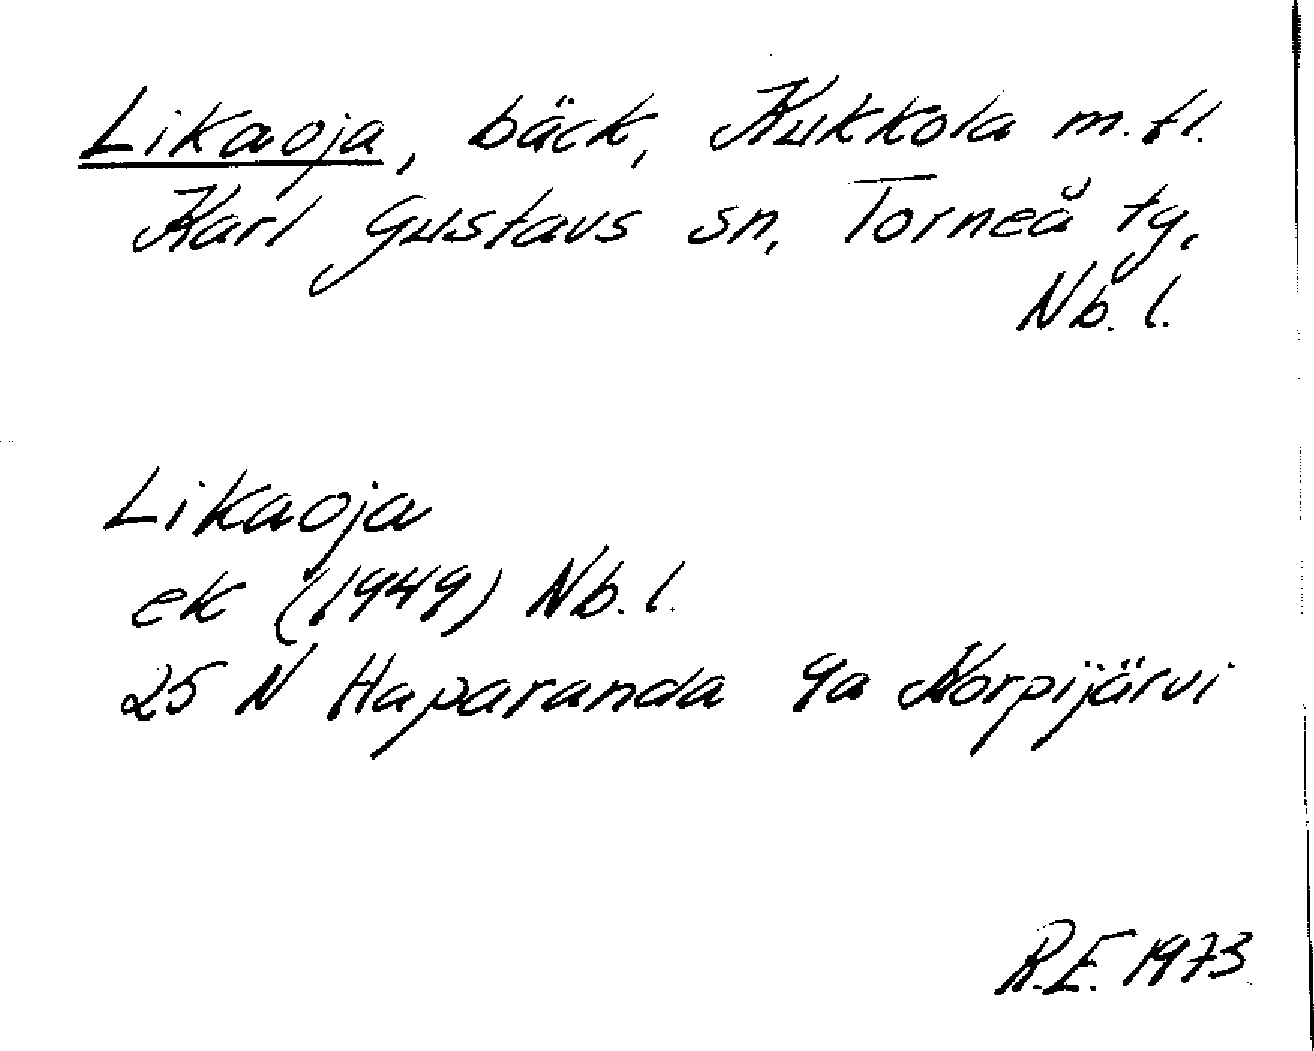 Likaoja, bäck, Kukkola m.fl.
Karl Gustavs sn, Torneå tg,
Nb. l.
Likaoja
ek (1949) Nb. l.
25 N Haparanda 9a Korpijärvi
R.E. 1973